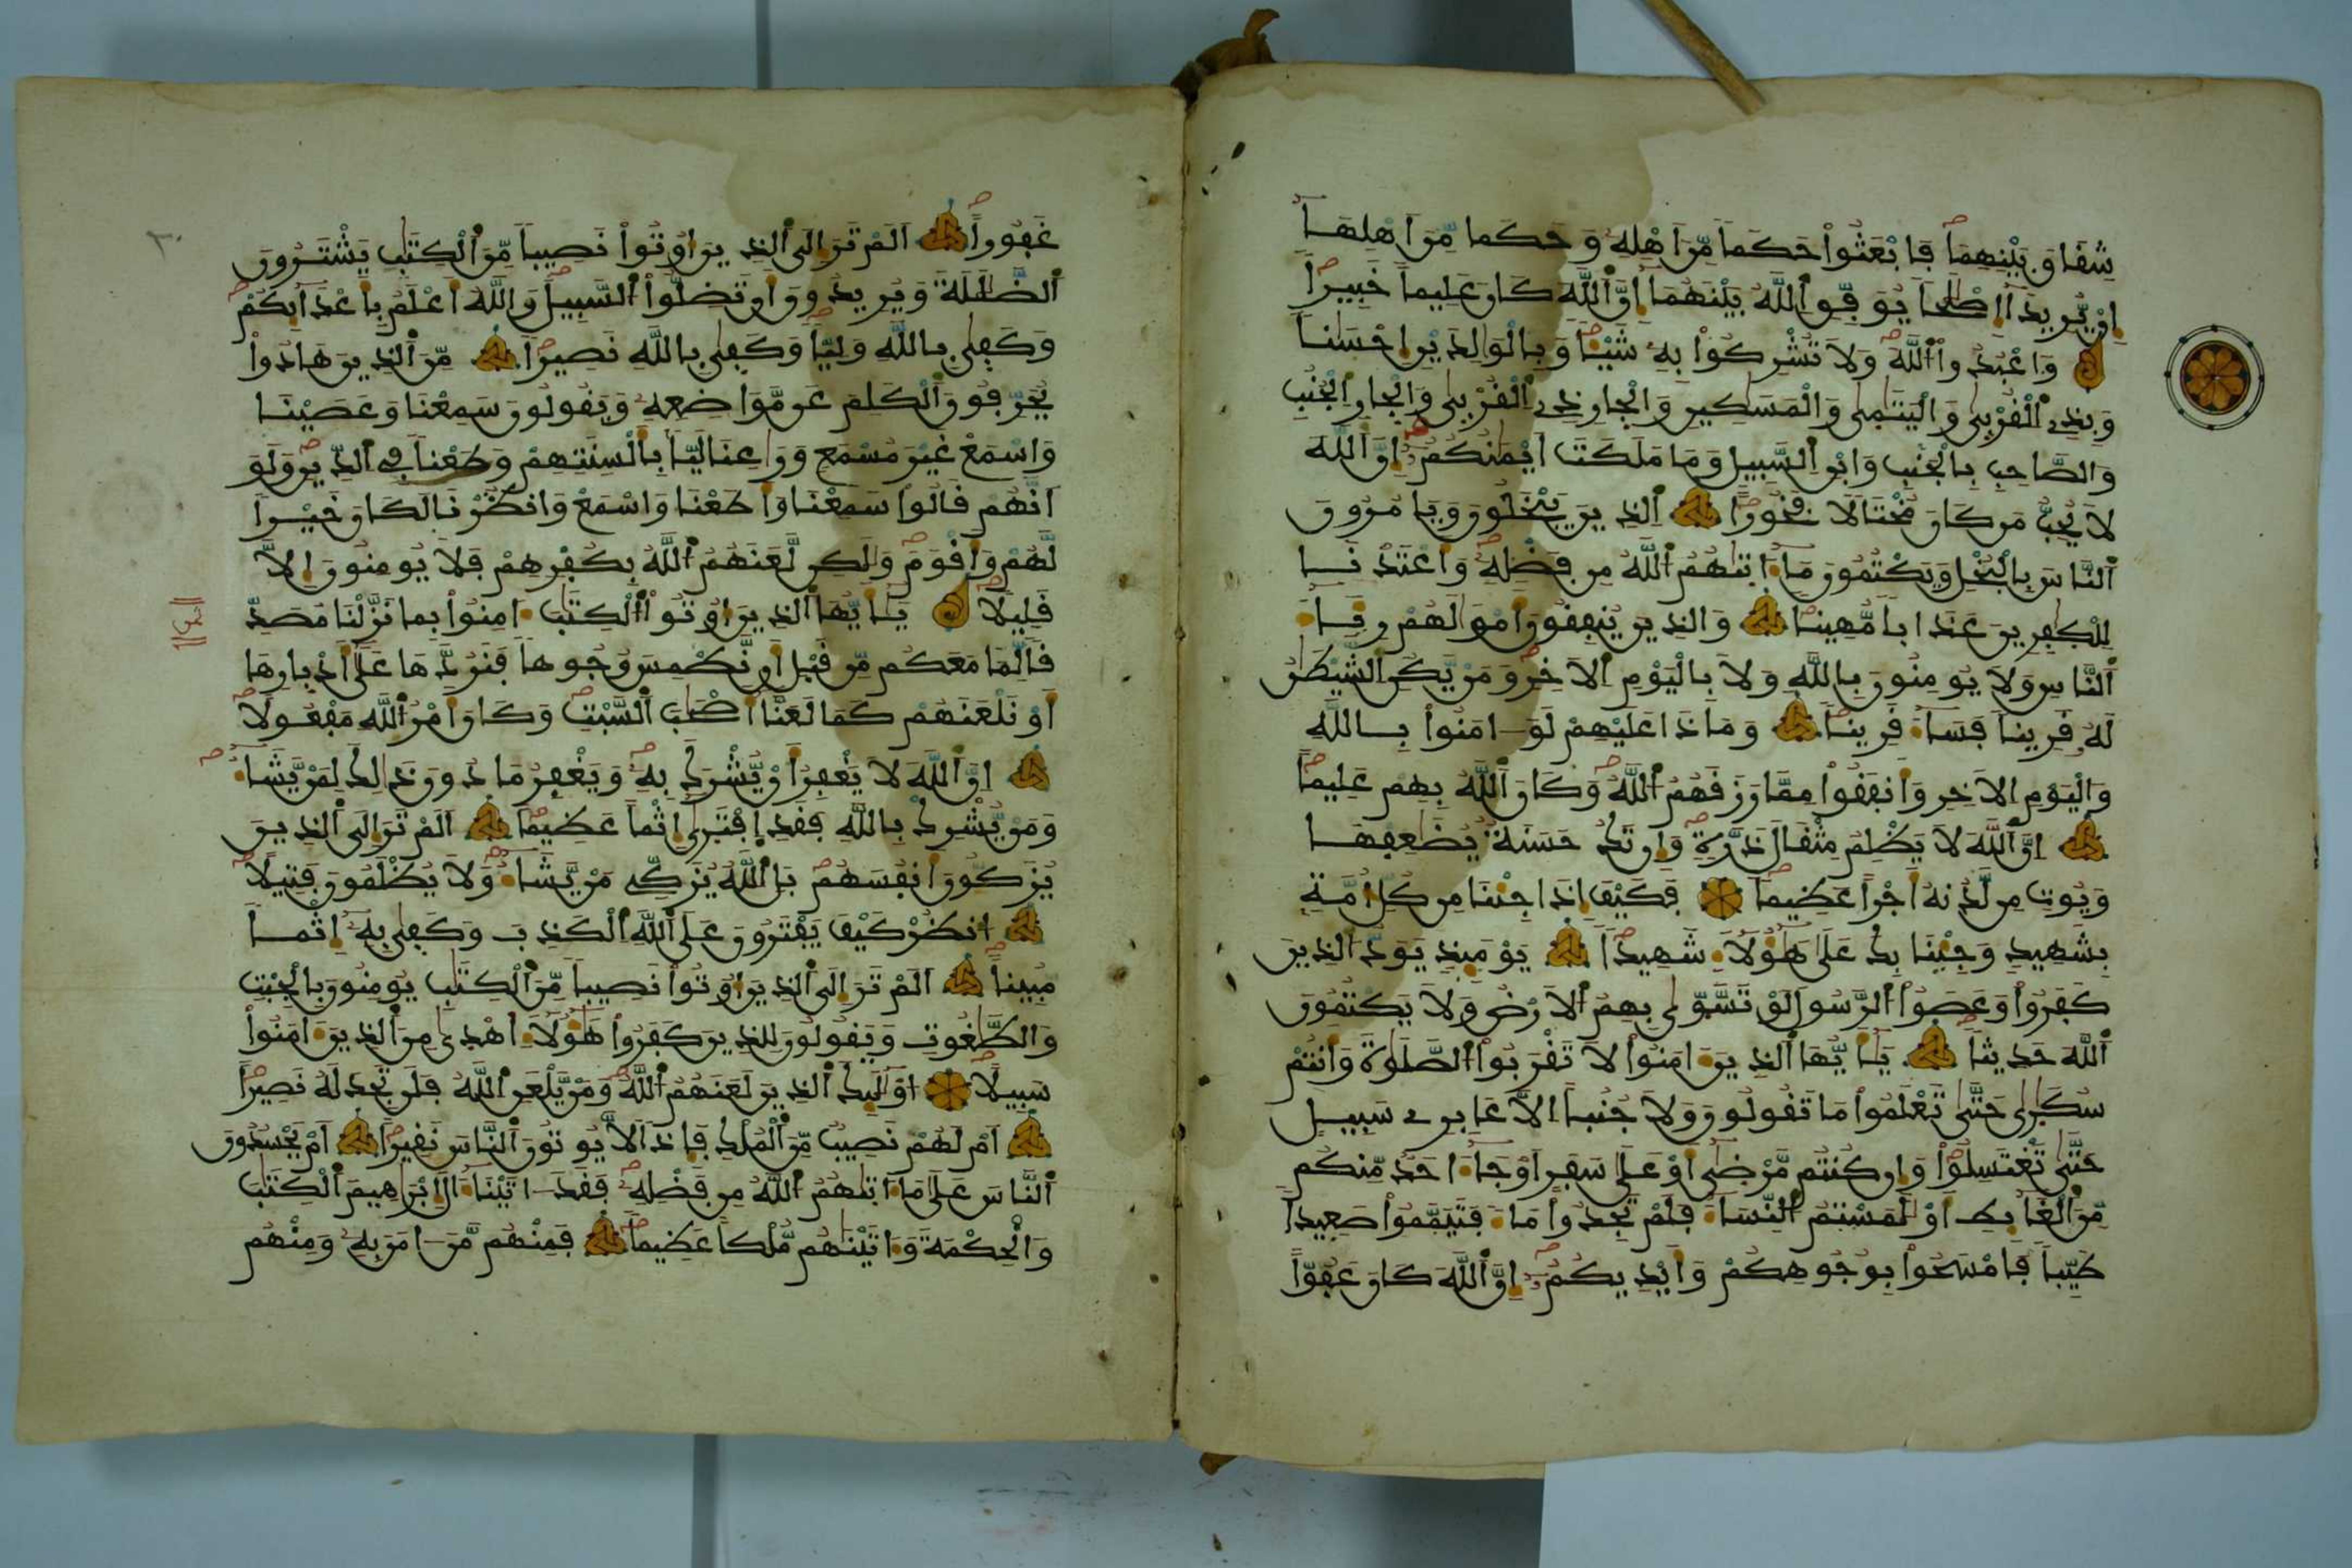 شِقَاقَ بَيْنِهِمَا فَابْعَثُواْ حَكَماً مِّنَ اَهْلِهِۦ وَحَكَماً مِّنَ اَهْلِهَا
إِنْ يُّرِيدَا إِصْلَٰحاً يُوَفِّقِ اِ۬للَّهُ بَيْنَهُمَا إِنَّ اَ۬للَّهَ كَانَ عَلِيماً خَبِيراً
وَاعْبُدُواْ اُ۬للَّهَ وَلَا تُشْرِكُواْ بِهِۦ شَيْـٔاً وَبِالْوَٰلِدَيْنِ إِحْسَٰناً
وَبِذِے اِ۬لْقُرْبَىٰ وَالْيَتَٰمَىٰ وَالْمَسَٰكِينِ وَالْجَارِ ذِے اِ۬لْقُرْبَىٰ وَالْجَارِ اِ۬لْجُنُبِ
وَالصَّاحِبِ بِالْجَنۢبِ وَابْنِ اِ۬لسَّبِيلِ وَمَا مَلَكَتَ اَيْمَٰنُكُمْ إِنَّ اَ۬للَّهَ
لَا يُحِبُّ مَن كَانَ مُخْتَالًا فَخُوراً اِ۬لذِينَ يَبْخَلُونَ وَيَامُرُونَ
اَ۬لنَّاسَ بِالْبُخْلِ وَيَكْتُمُونَ مَا ءَاتَىٰهُمُ اُ۬للَّهُ مِن فَضْلِهِۦ وَأَعْتَدْنَا
لِلْكَٰفِرِينَ عَذَاباً مُّهِيناً وَالذِينَ يُنفِقُونَ أَمْوَٰلَهُمْ رِئَآءَ
اَ۬لنَّاسِ وَلَا يُومِنُونَ بِاللَّهِ وَلَا بِالْيَوْمِ اِ۬لَاخِرِ وَمَنْ يَّكُنِ اِ۬لشَّيْطَٰنُ
لَهُۥ قَرِيناً فَسَآءَ قَرِيناً وَمَاذَا عَلَيْهِمْ لَوَ ـ امَنُواْ بِاللَّهِ
وَالْيَوْمِ اِ۬لَاخِرِ وَأَنفَقُواْ مِمَّا رَزَقَهُمُ اُ۬للَّهُ وَكَانَ اَ۬للَّهُ بِهِمْ عَلِيماً
إِنَّ اَ۬للَّهَ لَا يَظْلِمُ مِثْقَالَ ذَرَّةٍ وَإِن تَكُ حَسَنَةٌ يُضَٰعِفْهَا
وَيُوتِ مِن لَّدُنْهُ أَجْراً عَظِيماً فَكَيْفَ إِذَا جِئْنَا مِن كُلِّ أُمَّةِۢ
بِشَهِيدٍ وَجِئْنَا بِكَ عَلَىٰ هَٰٓؤُلَآءِ شَهِيداً يَوْمَئِذٍ يَوَدُّ اُ۬لذِينَ
كَفَرُواْ وَعَصَوُاْ اُ۬لرَّسُولَ لَوْ تَسَّوَّىٰ بِهِمُ اُ۬لَارْضُ وَلَا يَكْتُمُونَ
اَ۬للَّهَ حَدِيثاً يَٰٓأَيُّهَا اَ۬لذِينَ ءَامَنُواْ لَا تَقْرَبُواْ اُ۬لصَّلَوٰةَ وَأَنتُمْ
سُكَٰرَىٰ حَتَّىٰ تَعْلَمُواْ مَا تَقُولُونَ وَلَا جُنُباً اِلَّا عَابِرِے سَبِيلٍ
حَتَّىٰ تَغْتَسِلُواْ وَإِن كُنتُم مَّرْضَىٰ أَوْ عَلَىٰ سَفَرٍ اَوْ جَآءَ احَدٌ مِّنكُم
مِّنَ اَ۬لْغَآئِطِ أَوْ لَٰمَسْتُمُ اُ۬لنِّسَآءَ فَلَمْ تَجِدُواْ مَآءً فَتَيَمَّمُواْ صَعِيداً
طَيِّباً فَامْسَحُواْ بِوُجُوهِكُمْ وَأَيْدِيكُمْ إِنَّ اَ۬للَّهَ كَانَ عَفُوّاً
غَفُوراً اَلَمْ تَرَ إِلَى اَ۬لذِينَ أُوتُواْ نَصِيباً مِّنَ اَ۬لْكِتَٰبِ يَشْتَرُونَ
اَ۬لضَّلَٰلَةَ وَيُرِيدُونَ أَن تَضِلُّواْ اُ۬لسَّبِيلَ وَاللَّهُ أَعْلَمُ بِأَعْدَآئِكُمْ
وَكَفَىٰ بِاللَّهِ وَلِيّاً وَكَفَىٰ بِاللَّهِ نَصِيراً مِّنَ اَ۬لذِينَ هَادُواْ
يُحَرِّفُونَ اَ۬لْكَلِمَ عَن مَّوَاضِعِهِۦ وَيَقُولُونَ سَمِعْنَا وَعَصَيْنَا
وَاسْمَعْ غَيْرَ مُسْمَعٍ وَرَٰعِنَا لَيّاً بِأَلْسِنَتِهِمْ وَطَعْناً فِے اِ۬لدِّينِ وَلَوَ
اَنَّهُمْ قَالُواْ سَمِعْنَا وَأَطَعْنَا وَاسْمَعْ وَانظُرْنَا لَكَانَ خَيْراً
لَّهُمْ وَأَقْوَمَ وَلَٰكِن لَّعَنَهُمُ اُ۬للَّهُ بِكُفْرِهِمْ فَلَا يُومِنُونَ إِلَّا
قَلِيلًا يَٰٓأَيُّهَا اَ۬لذِينَ أُوتُواْ اُ۬لْكِتَٰبَ ءَامِنُواْ بِمَا نَزَّلْنَا مُصَدِّ
قاً لِّمَا مَعَكُم مِّن قَبْلِ أَن نَّطْمِسَ وُجُوهاً فَنَرُدَّهَا عَلَىٰ أَدْبَٰرِهَا
أَوْ نَلْعَنَهُمْ كَمَا لَعَنَّا أَصْحَٰبَ اَ۬لسَّبْتِ وَكَانَ أَمْرُ اُ۬للَّهِ مَفْعُولًا
إِنَّ اَ۬للَّهَ لَا يَغْفِرُ أَنْ يُّشْرَكَ بِهِۦ وَيَغْفِرُ مَا دُونَ ذَٰلِكَ لِمَنْ يَّشَآءُ
وَمَنْ يُّشْرِكْ بِاللَّهِ فَقَدِ اِ۪فْتَرَىٰ إِثْماً عَظِيماً اَلَمْ تَرَ إِلَى اَ۬لذِينَ
يُزَكُّونَ أَنفُسَهُم بَلِ اِ۬للَّهُ يُزَكِّے مَنْ يَّشَآءُ وَلَا يُظْلَمُونَ فَتِيلًا
اَ۟نظُرْ كَيْفَ يَفْتَرُونَ عَلَى اَ۬للَّهِ اِ۬لْكَذِبَ وَكَفَىٰ بِهِۦ إِثْماً
مُّبِيناً اَلَمْ تَرَ إِلَى اَ۬لذِينَ أُوتُواْ نَصِيباً مِّنَ اَ۬لْكِتَٰبِ يُومِنُونَ بِالْجِبْتِ
وَالطَّٰغُوتِ وَيَقُولُونَ لِلذِينَ كَفَرُواْ هَٰٓؤُلَآءِ اهْدَىٰ مِنَ اَ۬لذِينَ ءَامَنُواْ
سَبِيلًا اُوْلَٰٓئِكَ اَ۬لذِينَ لَعَنَهُمُ اُ۬للَّهُ وَمَنْ يَّلْعَنِ اِ۬للَّهُ فَلَن تَجِدَ لَهُۥ نَصِيراً
أَمْ لَهُمْ نَصِيبٌ مِّنَ اَ۬لْمُلْكِ فَإِذاً لَّا يُوتُونَ اَ۬لنَّاسَ نَقِيراً أَمْ يَحْسُدُونَ
اَ۬لنَّاسَ عَلَىٰ مَا ءَاتَىٰهُمُ اُ۬للَّهُ مِن فَضْلِهِۦ فَقَدَ ـ اتَيْنَا ءَالَ إِبْرَٰهِيمَ اَ۬لْكِتَٰبَ
وَالْحِكْمَةَ وَءَاتَيْنَٰهُم مُّلْكاً عَظِيماً فَمِنْهُم مَّنَ ـ امَنَ بِهِۦ وَمِنْهُم